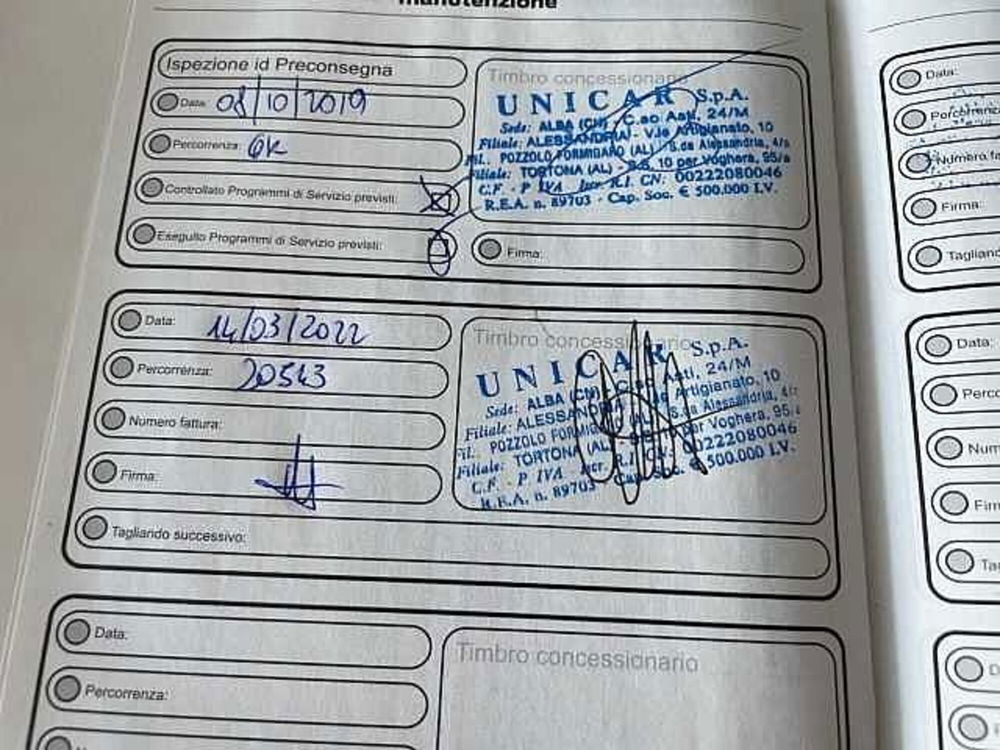 manutenzione
Ispezione id Preconsegna
Data: 08/10/2019
Percorrenza: 6K
Controllato Programmi di Servizio previsti:
Eseguito Programmi di Servizio previsti:
Timbro concessionario
UNICAR S.p.A.
Sede: ALBA (CN) C.so Asti, 24/M
Filiale: ALESSANDRIA - V.le Artigianato, 10
Fil. POZZOLO FORMIGARO (AL) S.da Alessandria, 4/a
Filiale: TORTONA (AL) - S.S. 10 per Voghera, 95/a
C.F. - P IVA Iscr. R.I. CN: 00222080046
R.E.A. n. 89703 - Cap. Soc. € 500.000 I.V.
Firma:
Data: 14/03/2022
Percorrenza: 20543
Numero fattura:
Firma:
Tagliando successivo:
Timbro concessionario
UNICAR S.p.A.
Sede: ALBA (CN) C.so Asti, 24/M
Filiale: ALESSANDRIA Artigianato, 10
Fil. POZZOLO FORMIGARO (AL) S.da Alessandria, 4/
Filiale: TORTONA (AL) per Voghera, 95/a
C.F. - P IVA Iscr. R.I. CN. 00222080046
R.E.A. n. 89703 Cap. Soc. € 500.000 I.V.
Data:
Percorrenza:
Timbro concessionario
Data:
Percorrenza
Numero fa
Firma:
Tagliand
Data:
Perco
Num
Firm
Tag
D